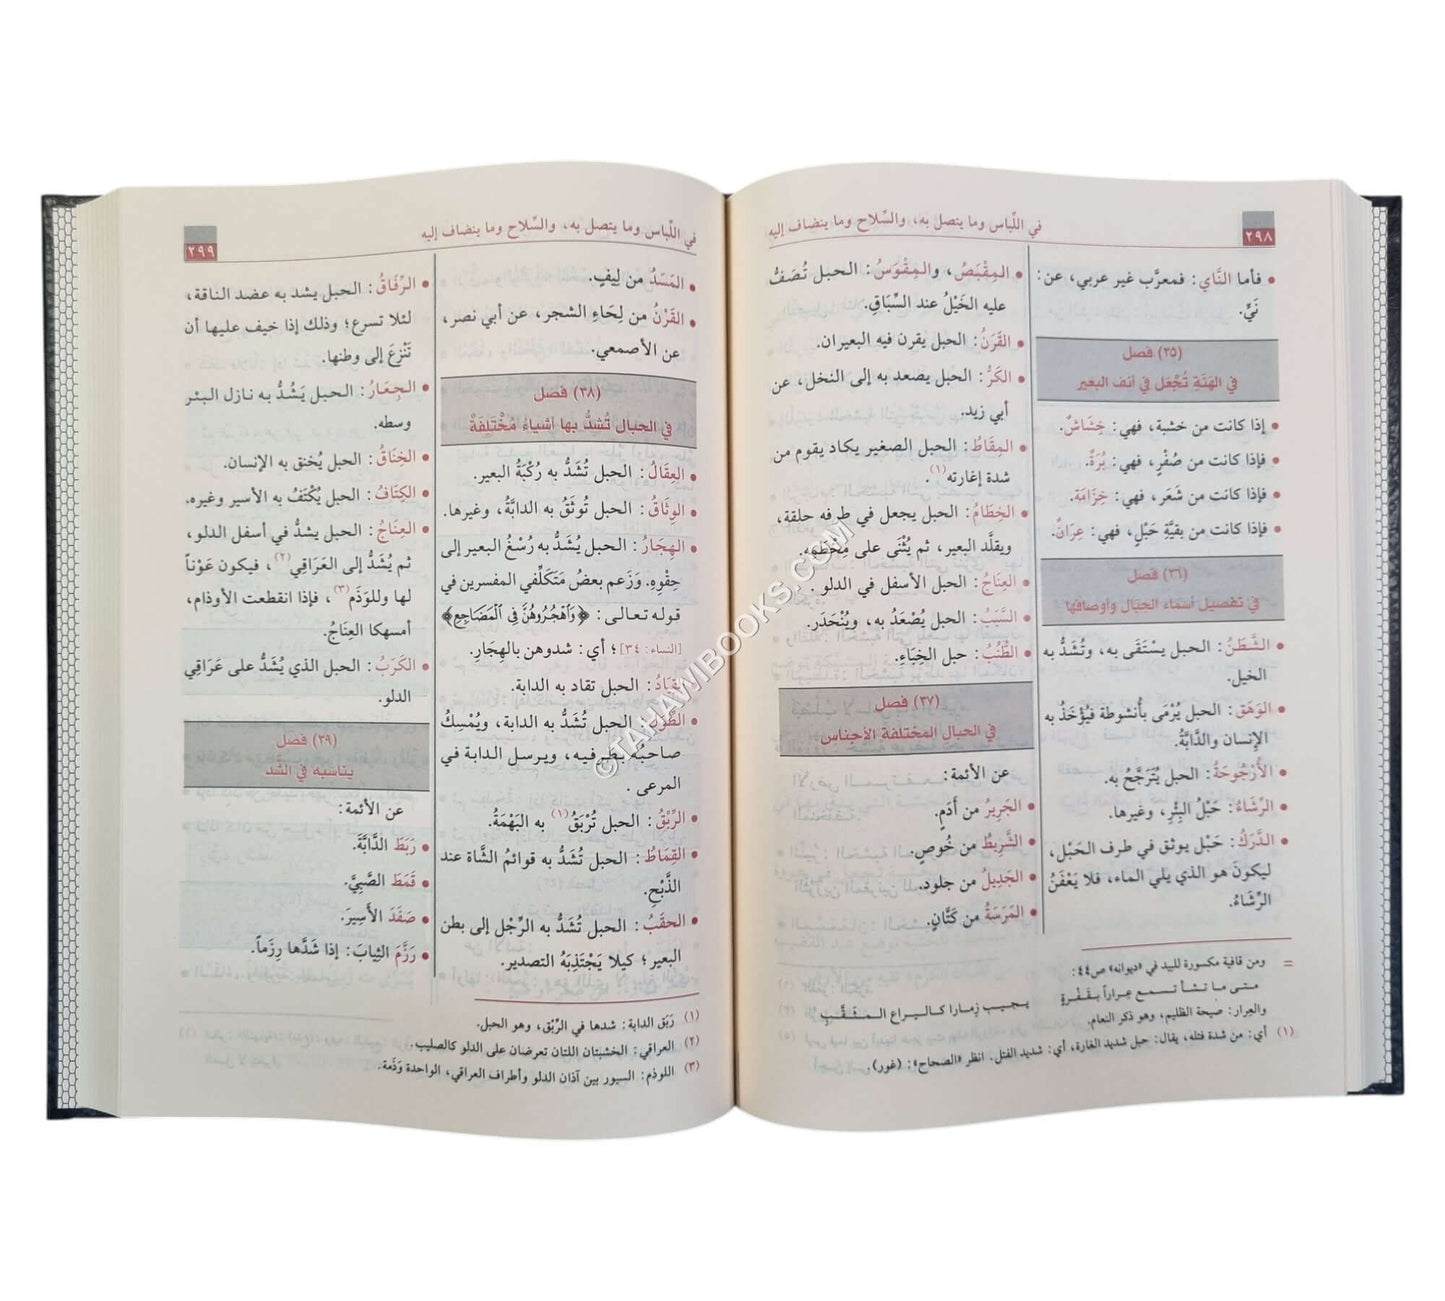 ٢٩٨
في اللِّباس وما يتصل به، والسِّلاح وما ينضاف إليه
• فأما النَّاي: فمعرَّب غير عربي، عن:
نَيٍّ.
(٣٥) فصل
في الهَنَةِ تُجْعَل في أنف البعير
• إذا كانت من خشبة، فهي: خِشَاشٌ.
• فإذا كانت من صُفْرٍ، فهي: بُرَةٌ.
• فإذا كانت من شَعَر، فهي: خِزَامَة.
• فإذا كانت من بقيَّةِ حَبْلٍ، فهي: عِرَانٌ.
(٣٦) فصل
في تفصيل أسماء الحبَال وأوصافها
• الشَّطَنُ: الحبل يسْتَقَى به، وتُشَدُّ به
الخيل.
• الوَهَق: الحبل يُرْمَى بأُنشوطة فيُؤْخَذُ به
الإنسان والدَّابَّةُ.
• الأُرْجُوحَةُ: الحبل يُتَرَجَّحُ به.
• الرِّشَاءُ: حَبْلُ البِئْرِ، وغيرها.
• الدَّرَكُ: حَبْل يوثق في طرف الحَبْل،
ليكونَ هو الذي يلي الماء، فلا يَعْفَنُ
الرِّشَاءُ.
• المِقْبَصُ، والمِقْوَسُ: الحبل تُصَفُّ
عليه الخَيْلُ عند السِّبَاقِ.
• القَرَنُ: الحبل يقرن فيه البعيران.
• الكَرُّ: الحبل يصعد به إلى النخل، عن
أبي زيد.
• المِقَاطُ: الحبل الصغير يكاد يقوم من
شدة إغارته(١).
• الخِطَامُ: الحبل يجعل في طرفه حلقة،
ويقلَّد البعير، ثم يُثْنَى على مِخْطَمِه.
• العِنَاجُ: الحبل الأسفل في الدلو.
• السَّبَبُ: الحبل يُصْعَدُ به، ويُنْحَدَر.
• الطُّنُبُ: حبل الخِبَاءِ.
(٣٧) فصل
في الحبال المختلفة الأجناس
عن الأئمة:
• الجَرِيرُ من أَدَمٍ.
• الشَّرِيطُ من خُوصٍ.
• الجَدِيلُ من جلود.
• المَرَسَةُ من كَتَّانٍ.
= ومن قافية مكسورة للبيد في «ديوانه» ص٤٤:
متى ما تشأ تسمع عراراً بقفرة يجيب زمارا كاليراع المثقب
والعرار: صيحة الظليم، وهو ذكر النعام.
(١) أي: من شدة فتله، يقال: حبل شديد الغارة، أي: شديد الفتل. انظر «الصحاح»: (غور).
في اللِّباس وما يتصل به، والسِّلاح وما ينضاف إليه
٢٩٩
• المَسَدُ من لِيفٍ.
• القَرْنُ من لِحَاءِ الشجر، عن أبي نصر،
عن الأصمعي.
(٣٨) فصل
في الحبال تُشدُّ بها أشياءُ مُخْتَلِفَةٌ
• العِقَالُ: الحبل تُشَدُّ به رُكْبَةُ البعير.
• الوِثَاقُ: الحبل تُوثَقُ به الدابَّةُ، وغيرها.
• الهِجَارُ: الحبل يُشَدُّ به رُسْغُ البعير إلى
حِقْوِهِ. وَزَعم بعضُ مَتَكَلِّفي المفسرين في
قوله تعالى: ﴿وَاهْجُرُوهُنَّ فِي الْمَضَاجِعِ﴾
[النساء: ٣٤]؛ أي: شدوهن بالهِجَارِ.
• القِيَادُ: الحبل تقاد به الدابة.
• الطِّوَلُ: الحبل تُشَدُّ به الدابة، ويُمْسِكُ
صاحبُه بطرفيه، ويرسل الدابة في
المرعى.
• الرِّبْقُ: الحبل تُرْبَقُ(١) به البَهْمَةُ.
• القِمَاطُ: الحبل تُشَدُّ به قوائمُ الشَّاة عند
الذَّبْحِ.
• الحقَبُ: الحبل تُشَدُّ به الرِّجْل إلى بطن
البعير؛ كيلا يَجْتَذِبَهُ التصدير.
• الرِّفَاقُ: الحبل يشد به عضد الناقة،
لئلا تسرع؛ وذلك إذا خيف عليها أن
تَنْزِعَ إلى وطنها.
• الجِعَارُ: الحبل يَشُدُّ به نازل البئر
وسطه.
• الخِنَاقُ: الحبل يُخنق به الإنسان.
• الكِتَافُ: الحبل يُكْتَفُ به الأسير وغيره.
• العِنَاجُ: الحبل يشدُّ في أسفل الدلو،
ثم يُشَدُّ إلى العَرَاقِي(٢)، فيكون عَوْناً
لها وللوَذَم(٣)، فإذا انقطعت الأوذام،
أمسهكا العِنَاجُ.
• الكَرَبُ: الحبل الذي يُشَدُّ على عَرَاقِي
الدلو.
(٣٩) فصل
يناسبه في الشد
عن الأئمة:
• رَبَطَ الدَّابَّةَ.
• قَمَطَ الصَّبِيَّ.
• صَفَدَ الأَسِيرَ.
• رَزَّمَ الثِيابَ: إذا شَدَّها رِزَماً.
(١) رَبَق الدابة: شدها في الرِّبْق، وهو الحبل.
(٢) العراقي: الخشبتان اللتان تعرضان على الدلو كالصليب.
(٣) اللوذم: السيور بين آذان الدلو وأطراف العراقي، الواحدة وَذَمة.
© TAHAWIBOOKS.COM